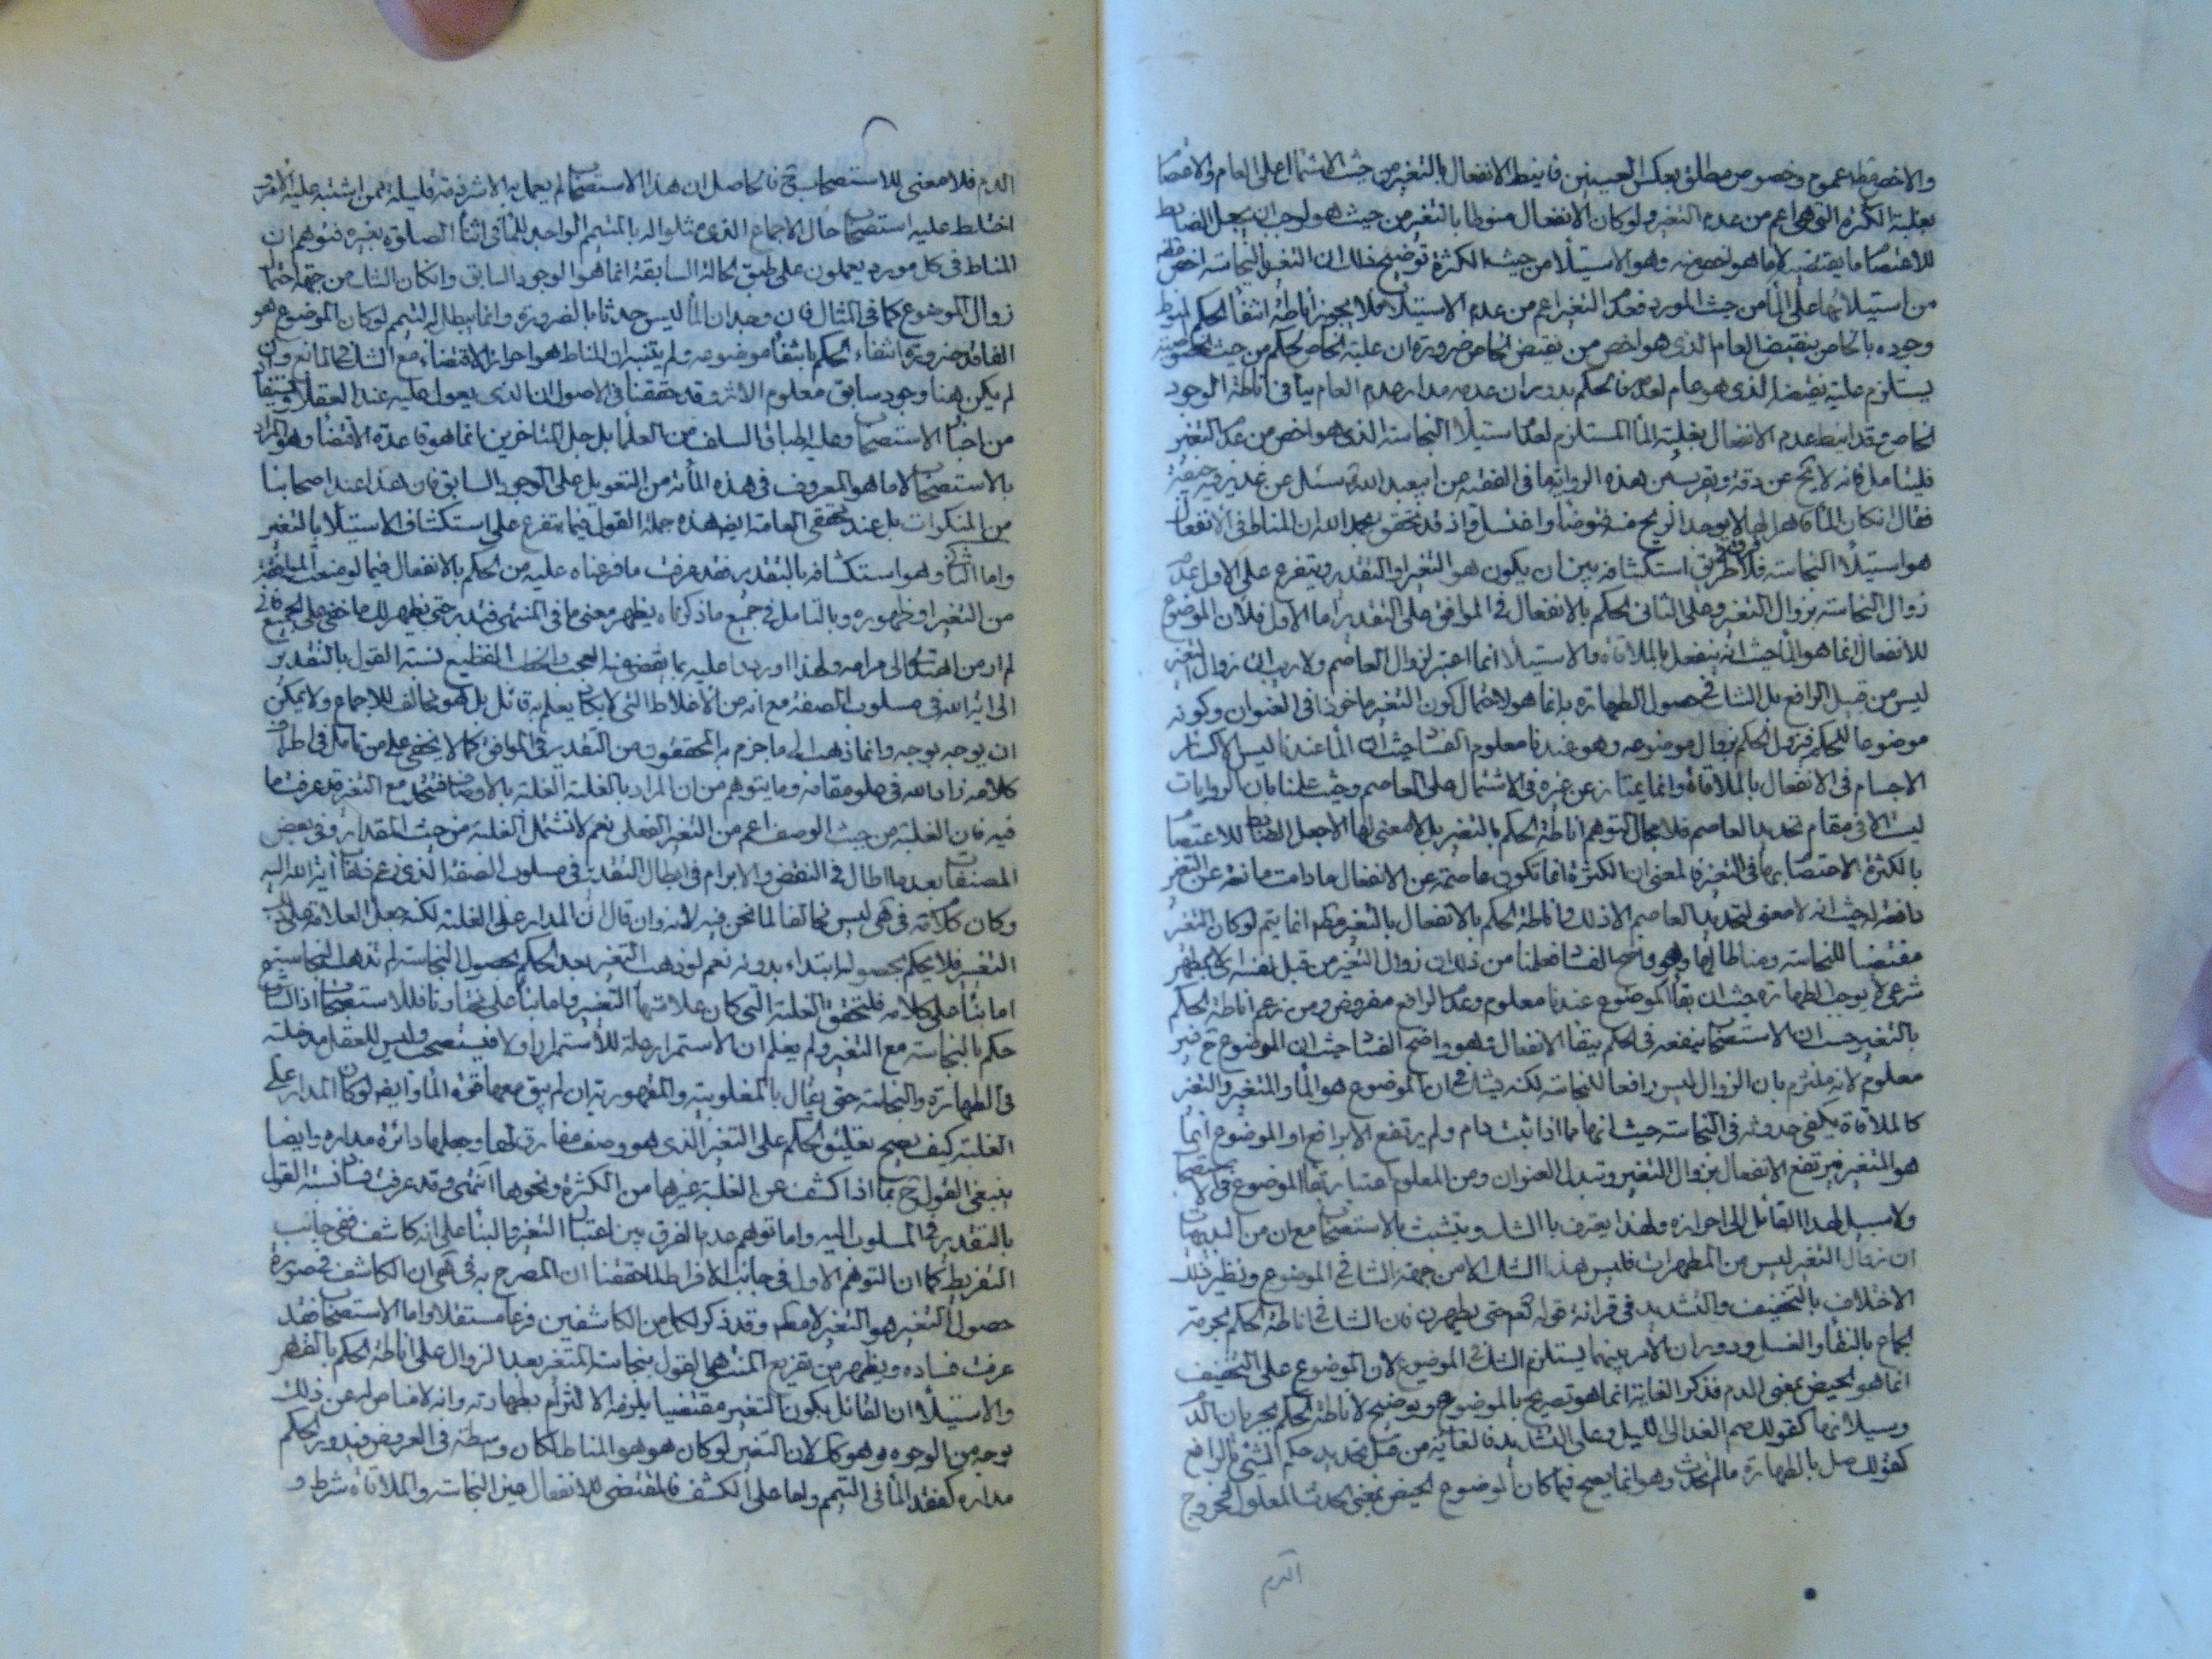 والاخص مطلق عموم وخصوص مطلق بعكس العينين فاينط الانفعال بالتغير من حيث الاشتمال على العام والاعتصام
بعلية الكثرة التى هى اعم من عدم التغير ولو كان الانفعال منوطا بالتغير من حيث هو لوجب ان يجعل الضابط
للاعتصام ما يقتضيه لا ما هو اخص منه وهو الاستيلاء من حيث الكثرة توضيح ذلك ان التغير بالنجاسة اخص مطلقا
من استيلائها على الماء من حيث المورد فعدم التغير اعم من عدم الاستيلاء فلا يجوز اناطة انتفاء الحكم المنوط
وجوده بالخاص بنقيض العام الذى هو اخص من نقيض الخاص ضرورة ان علية الخاص للحكم من حيث الخصوصية
يستلزم علية نقيضه الذى هو عام لعدمه فالحكم بدوران عدمه مدار عدم العام ينافى اناطة الوجود
بالخاص وقد انيط عدم الانفعال بغلبة الماء المستلزم لعدم استيلاء النجاسة الذى هو اخص من عدم التغير
فليتامل فانه لا يخ عن دقة ويقرب من هذه الرواية ما فى الفقيه من ابيعبد الله سئل عن غدير فيه جيفة
فقال ان كان الماء قاهرا لها لا يوجد الريح منه فتوضا واغتسل واذ قد تحقق بحمد الله ان المناط فى الانفعال
هو استيلاء النجاسة فلا فرق فى طريق استكشافه بين ان يكون هو التغير او التقدير ويتفرع على الاول عدم
زوال النجاسة بزوال التغير وعلى الثانى الحكم بالانفعال فى الموافق على التقدير اما الاول فلان الموضوع
للانفعال انما هو الماء حيث انه ينفعل بالملاقاة والاستيلاء انما اعتبر لزوال العاصم ولا ريب ان زوال التغير
ليس من قبيل الرافع بل الشك فى حصول الطهارة به انما هو لاحتمال كون التغير ماخوذا فى العنوان وكونه
موضوعا للحكم فيزول الحكم بزوال موضوعه وهو عندنا معلوم الفساد حيث ان الماء عندنا ليس الا كسائر
الاجسام فى الانفعال بالملاقاة وانما يمتاز عن غيره فى الاشتمال على العاصم وحيث علمنا بان الروايات
ليست الا فى مقام تحديد العاصم فلا مجال لتوهم اناطة الحكم بالتغير بل لا معنى لها الا جعل الضابط للاعتصام
بالكثرة الاختصاص بها فى التغير بمعنى ان الكثرة انما تكون عاصمة عن الانفعال ما دامت مانعة عن التغير
دافعة له حيث انه لا معنى لتحديد العاصم الا ذلك واناطة الحكم بالانفعال بالتغير مطلقا انما يتم لو كان التغير
مقتضيا للنجاسة ومناطا لها وهو واضح الفساد فعلمنا من ذلك ان زوال التغير من قبل نفسه لا بمطهر
شرعى لا يوجب الطهارة حيث ان بقاء الموضوع عندنا معلوم وعدم الرافع مفروض ومن زعم اناطة الحكم
بالتغير حسب ان الاستصحاب ينفعه فى الحكم ببقاء الانفعال وهو واضح الفساد حيث ان الموضوع ح غير
معلوم لانه ملتزم بان الزوال ليس رافعا للنجاسة لكنه يشك فى ان الموضوع هو الماء والمتغير والتغير
كالملاقاة يكفى حدوثه فى النجاسة حيث انها مما اذا ثبت دام ولم يرتفع الا برافع او الموضوع انما
هو المتغير فيرتفع الانفعال بزوال التغير وتبدل العنوان ومن المعلوم اعتبار بقاء الموضوع فى الاستصحاب
ولا سبيل لهذا القائل الى احرازه ولهذا يعترف بالشك ويتشبث بالاستصحاب مع ان من البديهيات
ان زوال التغير ليس من المطهرات فليس هذا الشك الا من جهة الشك فى الموضوع ونظير ذلك
الاختلاف بالتخفيف والتشديد فى قرائة قوله تعم حتى يطهرن فان الشك فى اناطة الحكم بحرمة
الجماع بالنقاء والغسل ودوران الامر بينهما يستلزم الشك فى الموضوع لان الموضوع على التخفيف
انما هو الحيض بمعنى الدم فذكر الغاية انما هو تصريح بالموضوع وتوضيح لاناطة الحكم بجريان الدم
وسيلانها كقولك صم الغد الى الليل وعلى التشديد فالغاية من قبيل تحديد حكم الشئ بالرافع
كقولك صل بالطهارة ما لم تحدث وهو انما يصح فيما كان الموضوع الحيض بمعنى الحدث المعلول لخروج
الدم
الدم فلا معنى للاستصحاب ح فالحاصل ان هذا الاستصحاب لم يعمل به الا شرذمة قليلة ممن اشتبه عليه الامر و
اختلط عليه استصحاب حال الاجماع الذى مثلوا له بالمتيمم الواجد للماء فى اثناء الصلوة بغيره فتوهم ان
المناط فى كل مورد يعملون على طبق الحالة السابقة انما هو الوجود السابق وان كان الشك من جهة احتمال
زوال الموضوع كما فى المثال فان وجدان الماء ليس حدثا بالضرورة وانما يبطل به التيمم لو كان الموضوع هو
الفاقد ضرورة انتفاء الحكم بانتفاء موضوعه ولم يتنبه ان المناط هو احراز الاقتضاء مع الشك فى المانع وان
لم يكن هنا وجود سابق معلوم الاثر وقد حققنا فى الاصول ان الذى يعول عليه عند العقلاء ويستفاد
من اخبار الاستصحاب وعليه اطباق السلف من العلماء بل جل المتاخرين انما هو قاعدة الاقتضاء وهو المراد
بالاستصحاب لا ما هو المعروف فى هذه المأة من التعويل على الوجود السابق فان هذا عند اصحابنا
من المنكرات بل عند محققى العامة ايضا هذه جملة القول فيما يتفرع على استكشاف الاستيلاء بالتغير
واما الثانى وهو استكشافه بالتقدير فقد عرفت ما فرعناه عليه من الحكم بالانفعال فيما لو ضعف الموافقة
من التغير او ظهوره وبالتامل فى جميع ما ذكرناه يظهر معنى ما فى المنتهى فتدبر حتى يظهر لك ما خفى على الجميع فانى
لم ار من اهتدى الى مرامه ولهذا اورد عليه بما يقضى منه العجب والخطب الفظيع نسبة القول بالتقدير
الى اية الله فى مسلوب الصفة مع انه من الاغلاط التى لا يكاد يعلم به قائل بل هو مخالف للاجماع ولا يمكن
ان يوجه بوجه وانما ذهب الى ما جزم به المحققون من التقدير فى الموافق كما لا يخفى على من تامل فى اطراف
كلامه زاد الله فى علو مقامه وما يتوهم من ان المراد بالغلبة الغلبة بالاوصاف فتتحد مع التغير قد عرفت ما
فيه فان الغلبة من حيث الوصف اعم من التغير الفعلى نعم لا تشمل الغلبة من حيث المقدار وفى بعض
المصنفات بعد ما اطال فى النقض والابرام فى ابطال التقدير فى مسلوب الصفة الذى زعم ذهاب اية الله اليه
وكان كلامه فى هى ليس مخالفا لما نحن فيه لانه وان قال ان المدار على الغلبة لكنه جعل العلامة على ذلك
التغير فلا يحكم بحصوله ابتداء بدونه نعم لو ذهب التغير بعد الحكم بحصول النجاسة لم تذهب النجاسة
اما بناء على كلامه فلتحقق الغلبة التى كان علامتها التغير واما بناء على مختارنا فللاستصحاب اذ الشارع
حكم بالنجاسة مع التغير ولم يعلم ان الاستمرار علة للاستمرار او لا فيستصحب وليس للعقل مدخلية
فى الطهارة والنجاسة حتى يقال بالمغلوبية والمقهورية ان لم يبق معهما قوة الماء وايضا لو كان المدار على
الغلبة كيف يصح تعليق الحكم على التغير الذى هو وصف مفارق لها وجعلها دائرة مداره وايضا
ينبغى القول ح بما اذا كشف عن الغلبة غيرها من الكثرة ونحوها انتهى وقد عرفت فساد نسبة القول
بالتقدير فى المسلوب اليه واما توهم عدم الفرق بين اعتبار التغير والبناء على انه كاشف ففى جانب
التفريط كما ان التوهم الاول فى جانب الافراط لما حققنا ان المصرح به فى هى ان الكاشف فى صورة
حصول التغير هو التغير لا مطلقا وقد ذكر لكل من الكاشفين فرعا مستقلا واما الاستصحاب فقد
عرفت فساده ويظهر من تفريع المنتهى القول بنجاسة المتغير بعد الزوال على اناطة الحكم بالقهر
والاستيلاء ان القائل بكون التغير مقتضيا يلزمه الالتزام بطهارته وانه لا مناص له عن ذلك
بوجه من الوجوه وهو كك لان التغير لو كان هو المناط لكان واسطة فى العروض فيدور الحكم
مداره كفقد الماء فى التيمم واما على الكشف فالمقتضى للانفعال عين النجاسة والملاقاة شرط و